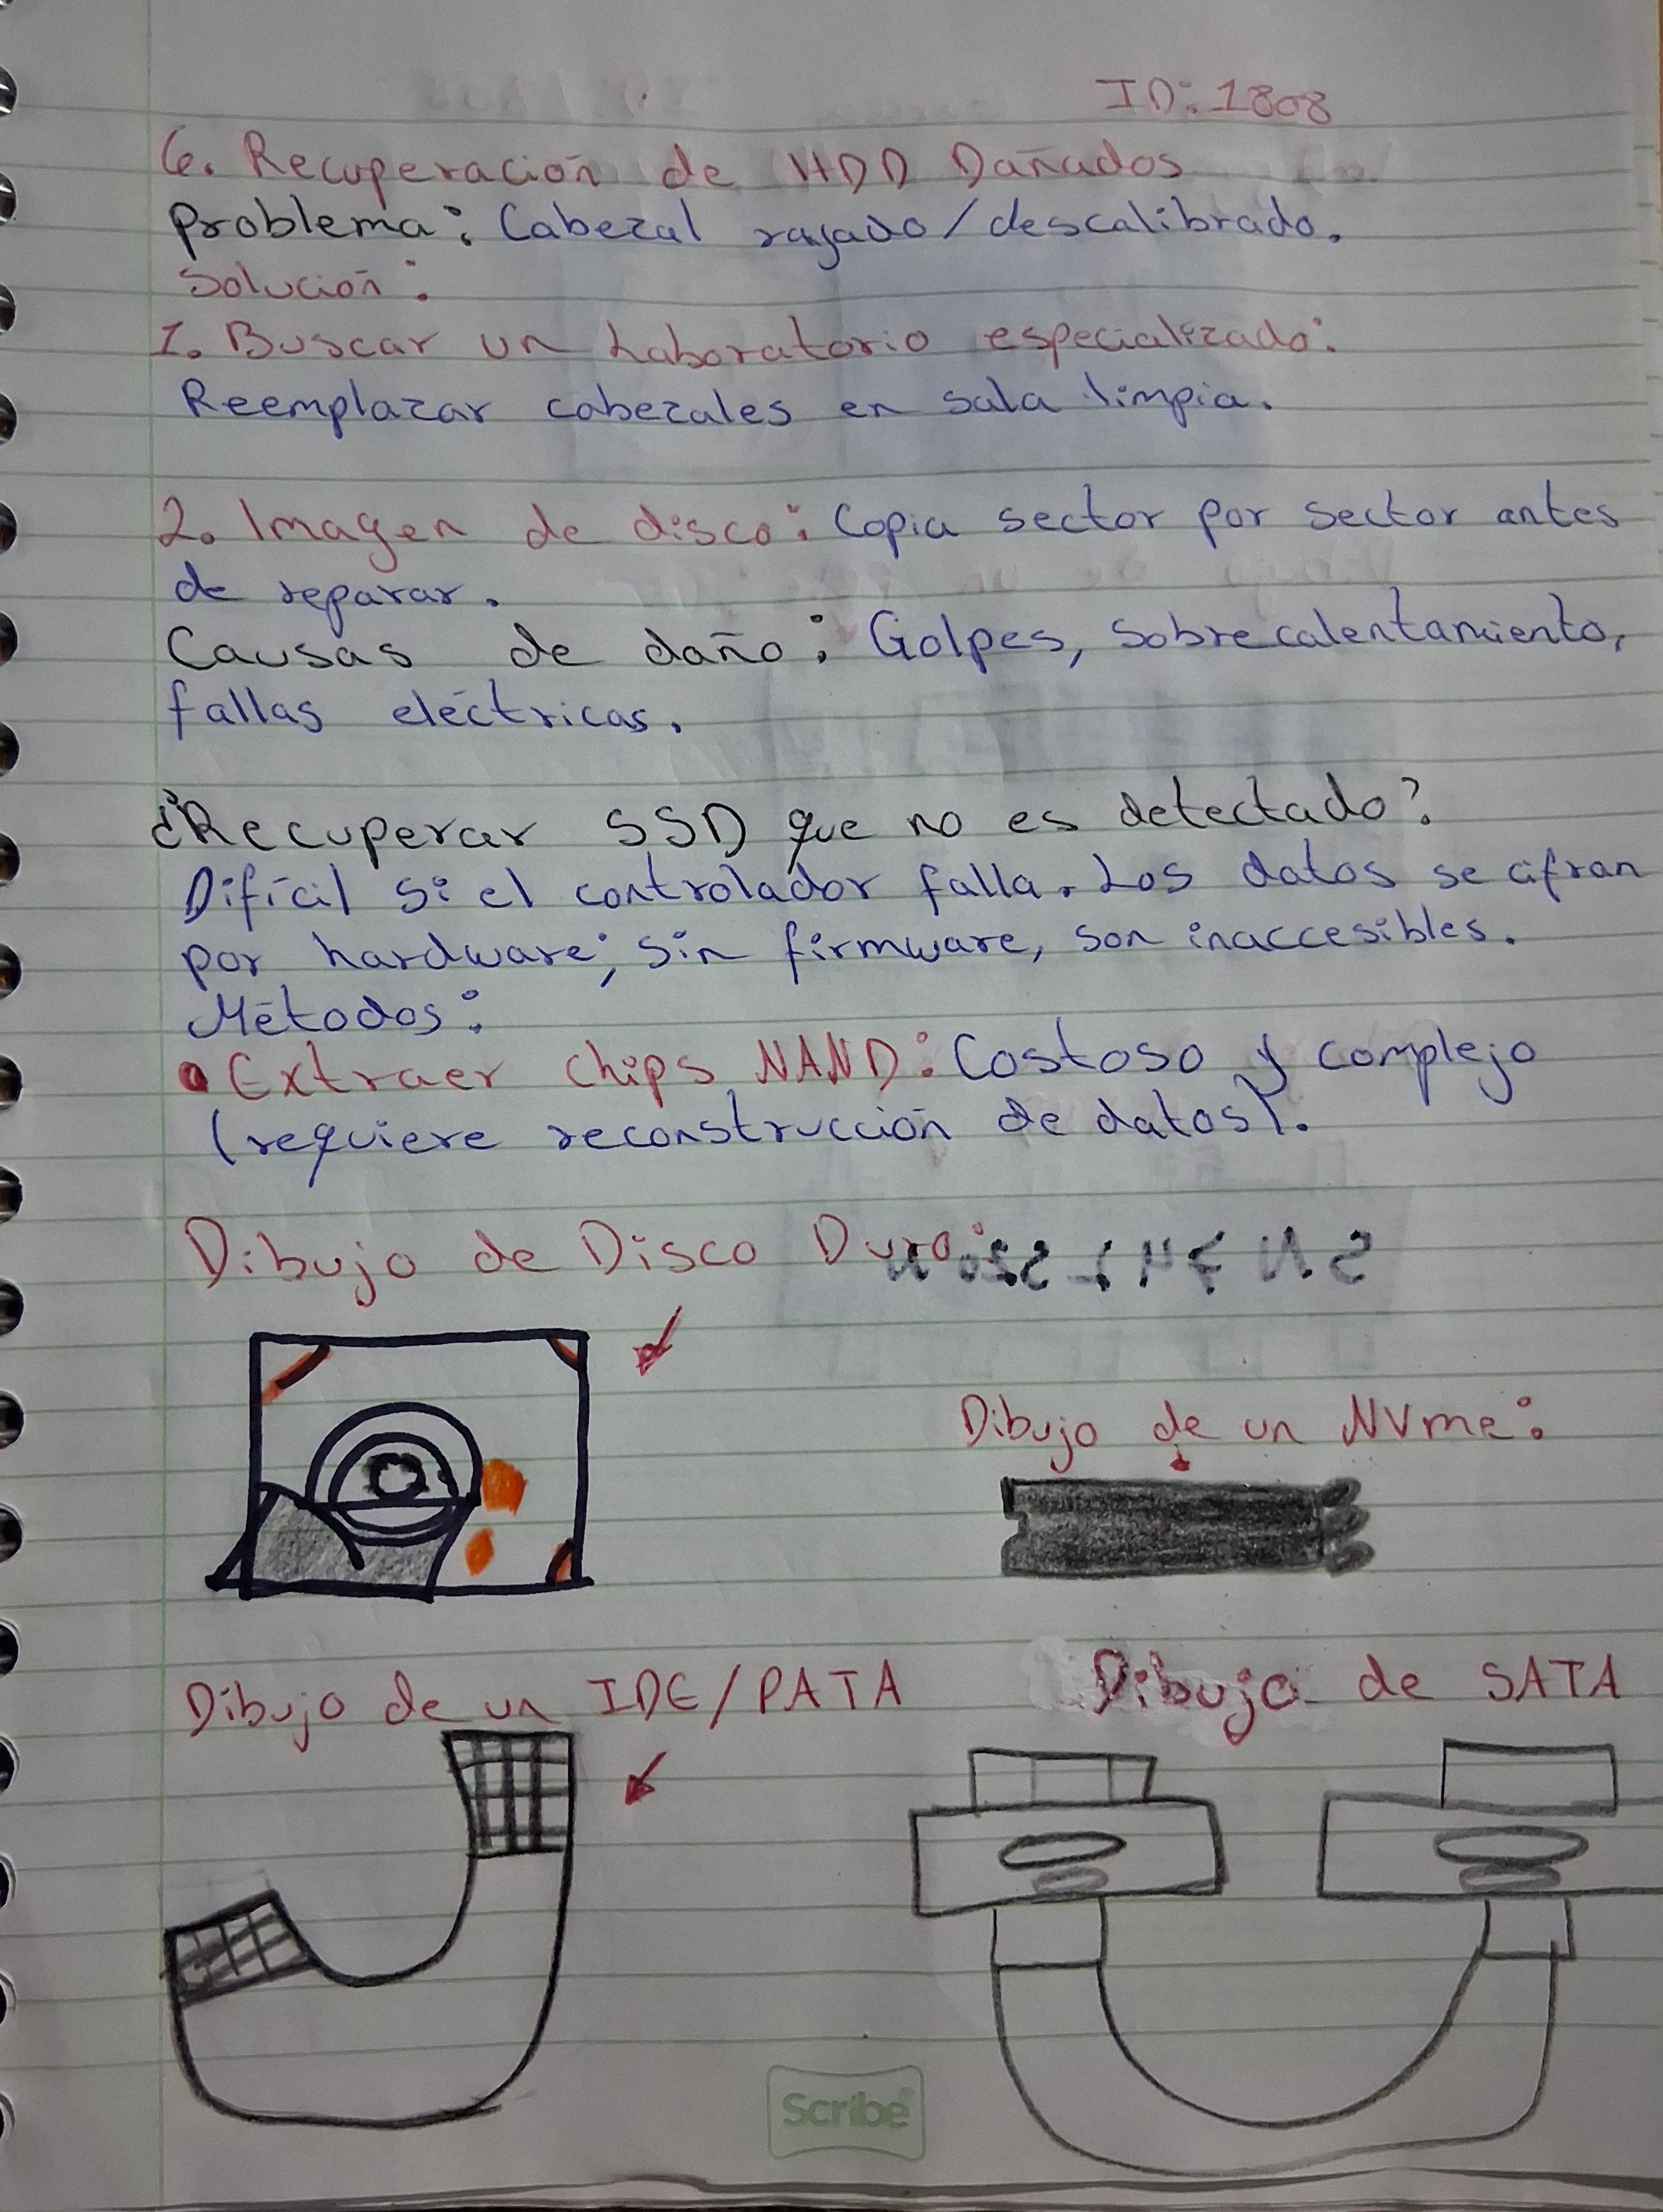 ID: 1808
6. Recuperación de HDD Dañados
Problema: Cabezal rayado/descalibrado.
Solución:
1. Buscar un Laboratorio especializado:
Reemplazar cabezales en sala limpia.
2. Imagen de disco: Copia sector por sector antes
de reparar.
Causas de daño: Golpes, Sobrecalentamiento,
fallas eléctricas.
¿Recuperar SSD que no es detectado?
Difícil si el controlador falla. Los datos se cifran
por hardware; sin firmware, son inaccesibles.
Métodos:
• Extraer chips NAND: Costoso y complejo
(requiere reconstrucción de datos).
Dibujo de Disco Duro:
Dibujo de un NVme:
Dibujo de un IDE/PATA
Dibujo de SATA
Scribe